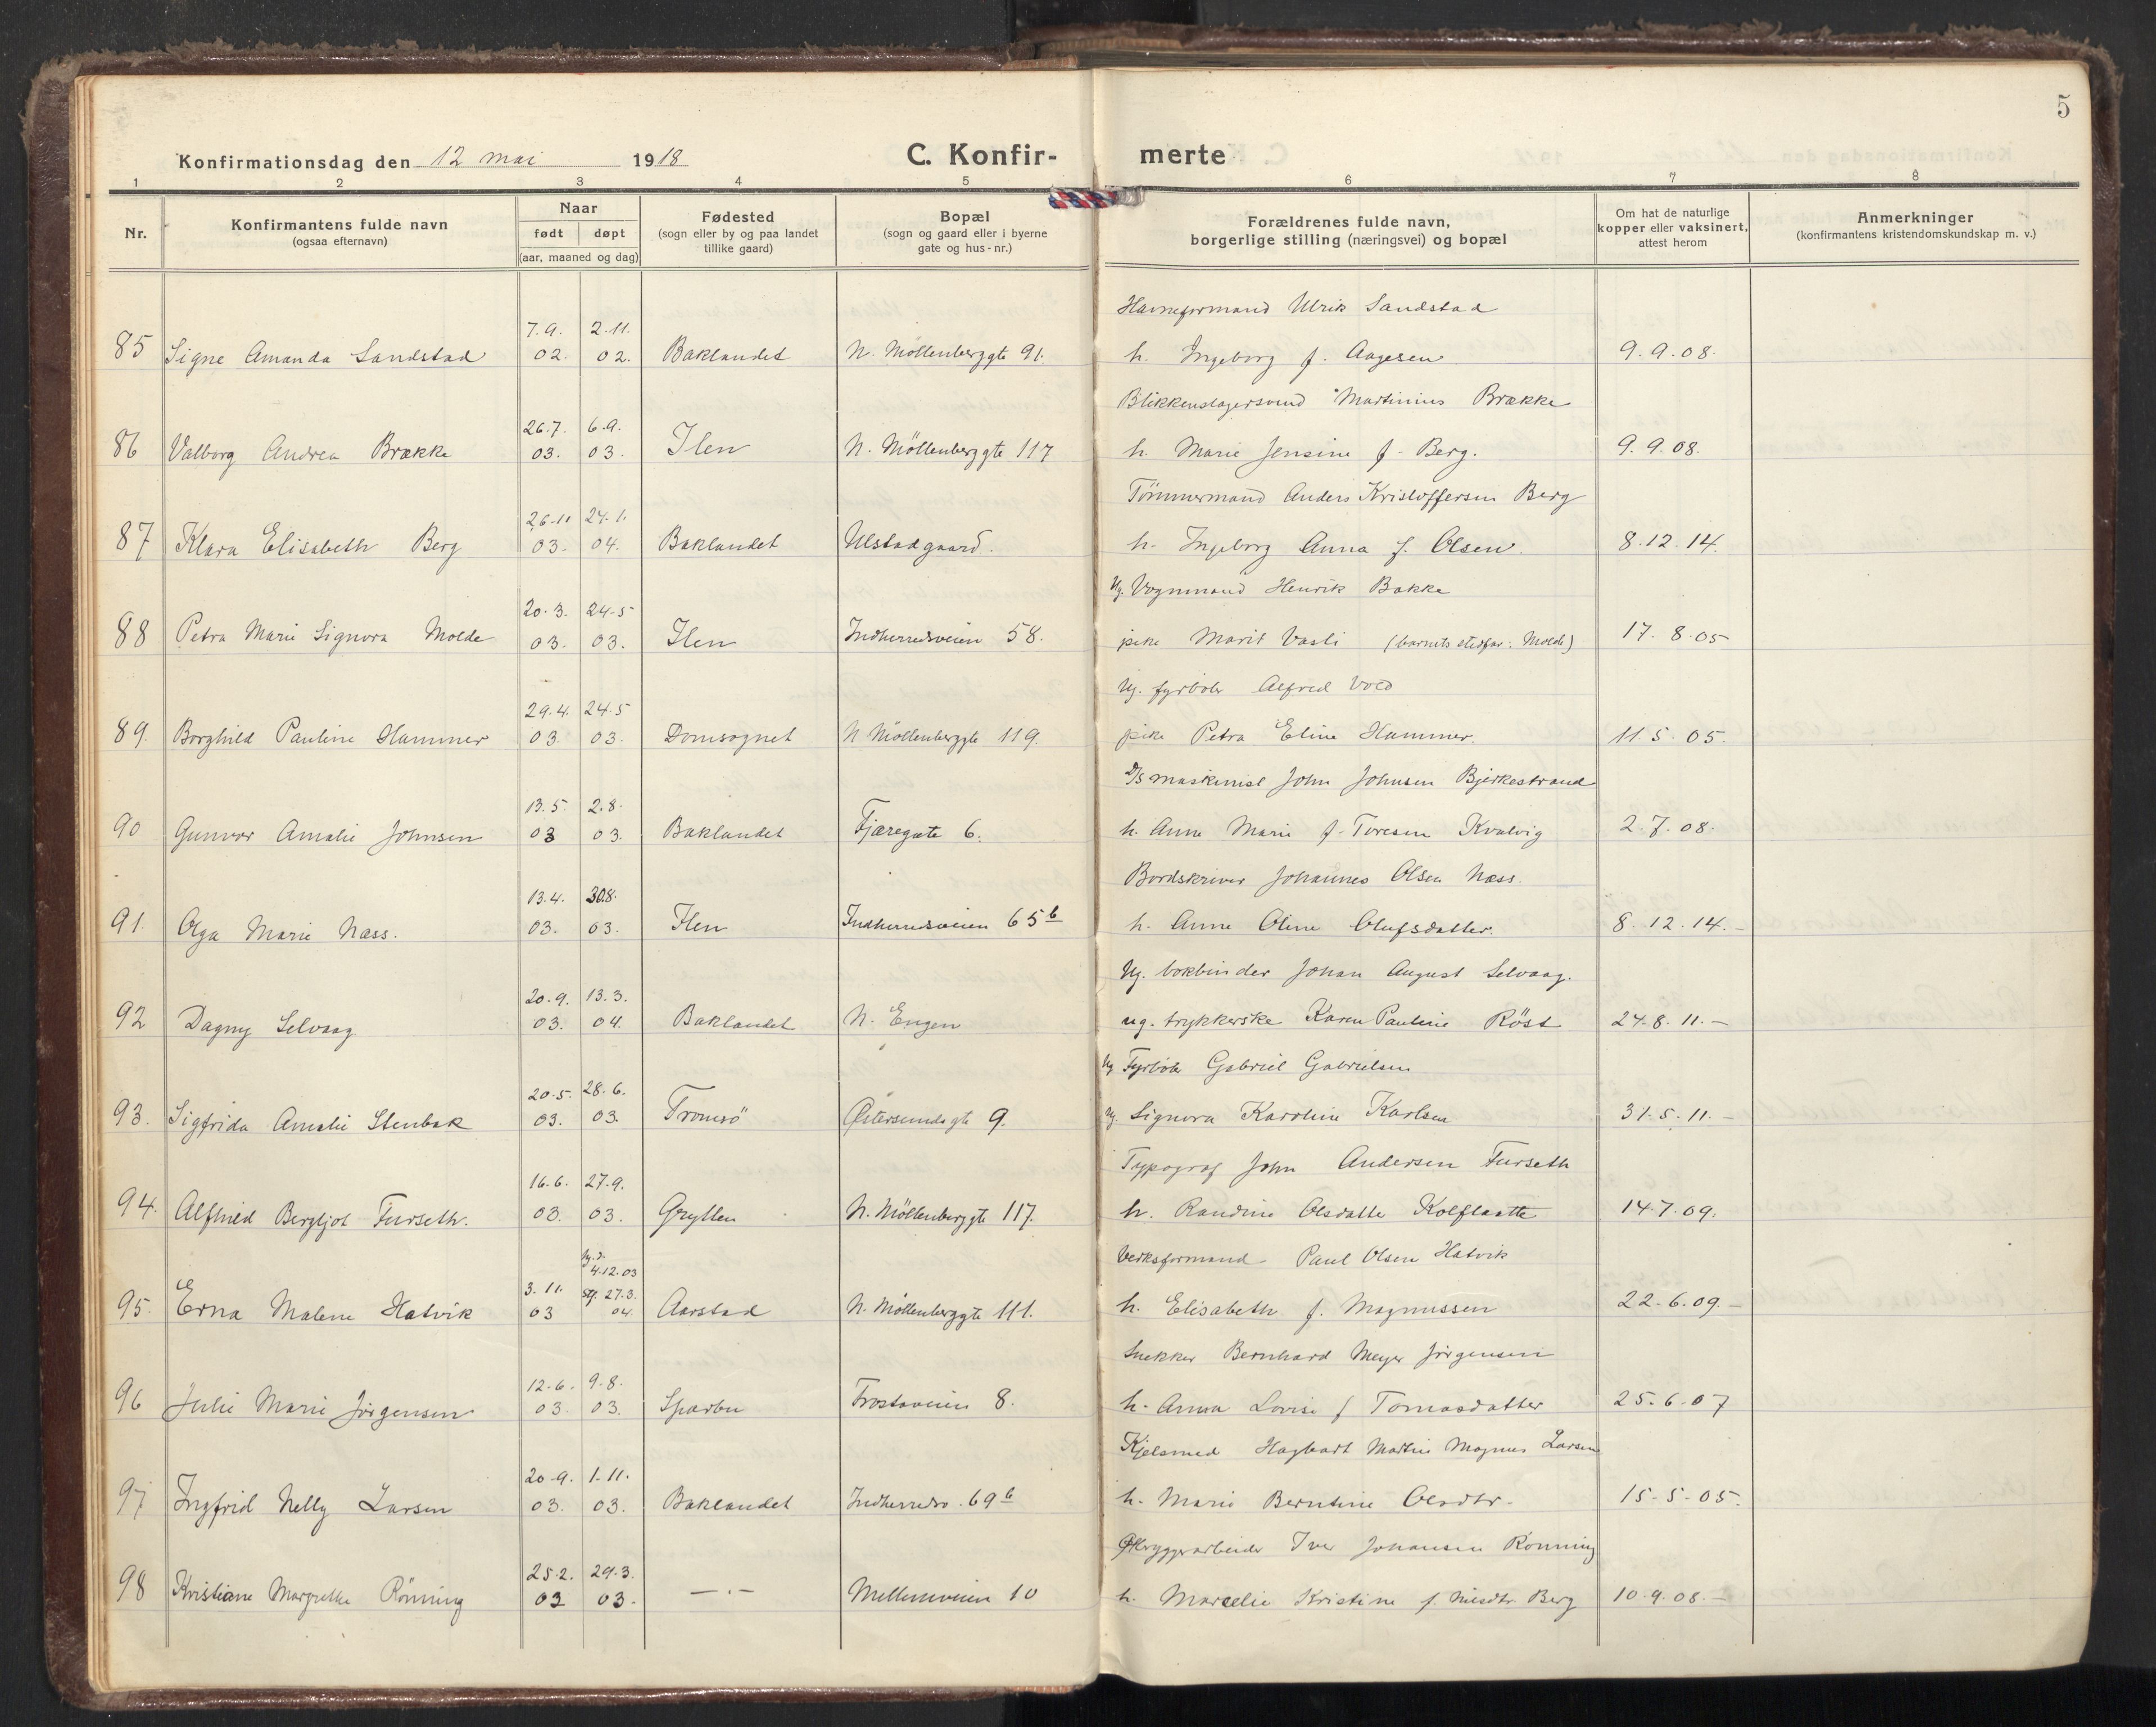 5
Konfirmationsdag den 12 mai 1918
C. Konfir-
merte
1 2 3 4 5 6 7 8
Nr.
Konfirmantens fulde navn
(ogsaa efternavn)
Naar
født døpt
(aar, maaned og dag)
Fødested
(sogn eller by og paa landet
tillike gaard)
Bopæl
(sogn og gaard eller i byerne
gate og hus-nr.)
Forældrenes fulde navn,
borgerlige stilling (næringsvei) og bopæl
Om hat de naturlige
kopper eller vaksinert,
attest herom
Anmerkninger
(konfirmantens kristendomskundskap m. v.)
7.9. 2.11. Havneformand Ulrik Sandstad
85 Signe Amanda Sandstad 02. 02. Baklandet N. Möllenberggte 91. h. Ingeborg f. Aagesen 9.9.08.
26.7. 6.9. Blikkenslagersvend Martinius Brække
86 Valborg Andrea Brække 03. 03. Ilen N. Möllenberggte 117 h. Marie Jensine f. Berg. 9.9.08.
26-11 24.1. Tömmermand Anders Kristoffersen Berg
87 Klara Elisabeth Berg 03. 04. Baklandet Ulstadgaard. h. Ingeborg Anna f. Olsen. 8.12.14.
20.3. 24-5 Ug. Vognmand Henrik Bakke
88 Petra Marie Signora Molde 03. 03. Ilen Indherredsveien 58. pike Marit Vasli (barnets stedfar: Molde) 17.8.05
29.4. 24.5 Ug. fyrböter Alfred Vold
89. Borghild Pauline Hammer 03 03. Domsognet N Möllenberggte 119. pike Petra Eline Hammer. 11.5.05.
13.5. 2.8. D/s maskinist John Johnsen Bjerkestrand
90 Gunvor Amalie Johnsen 03 03. Baklandet Fjæregate 6. h. Anne Marie f. Toresen Kvalvig 2.7.08.
13.4. 30.8. Bordskriver Johannes Olsen Næss.
91. Olga Marie Næss. 03. 03. Ilen Indherredsveien 65 b h. Anne Oline Olufsdatter. 8.12.14.-
20.9. 13.3. Ug. bokbinder Johan August Selvaag.
92 Dagny Selvaag 03. 04. Baklandet N. Engen ug. trykkerske Karen Pauline Röst 24-8.11.-
20.5. 28.6. Ug. Fyrböter Gabriel Gabrielsen
93. Sigfrida Amalie Stenbak 03. 03. Tromsö Østersundsgte 9. Ug. Signora Karoline Karlsen 31.5.11.-
16.6. 27.9. Typograf John Andersen Furseth
94. Alfhild Bergljot Furseth. 03. 03. Grytten N. Möllenberggte 117. h. Randine Olsdatte Kolflaatte 14.7.09.
hj.d. 4.12.03 Verksformand Paul Olsen Hatvik
3.11. stf. 27.3.
95. Erna Malene Hatvik 03 04. Aarstad N. Möllenberggte 111. h. Elisabeth f. Magnussen 22-6.09.-
12-6. 9.8. Snekker Bernhard Meyer Jörgensen
96 Julie Marie Jørgensen 03. 03. Sparbu Frostaveien 8. h. Anna Lovise f Tomasdatter 25-6-07
20-9. 1.11. Kjelsmed Hagbart Martin Magnus Larsen
97 Ingfrid Nelly Larsen 03. 03. Baklandet Indherredsv. 69 b h. Marie Berntine Olsdtr. 15-5-05.
25.2. 29.3. Ølbryggerarbeider Iver Johansen Rönning
98 Kristiane Margrethe Rönning 03 03. —.— Mellemveien 10 h. Marcelie Kristine f. Nilsdtr. Berg 10.9.08.-